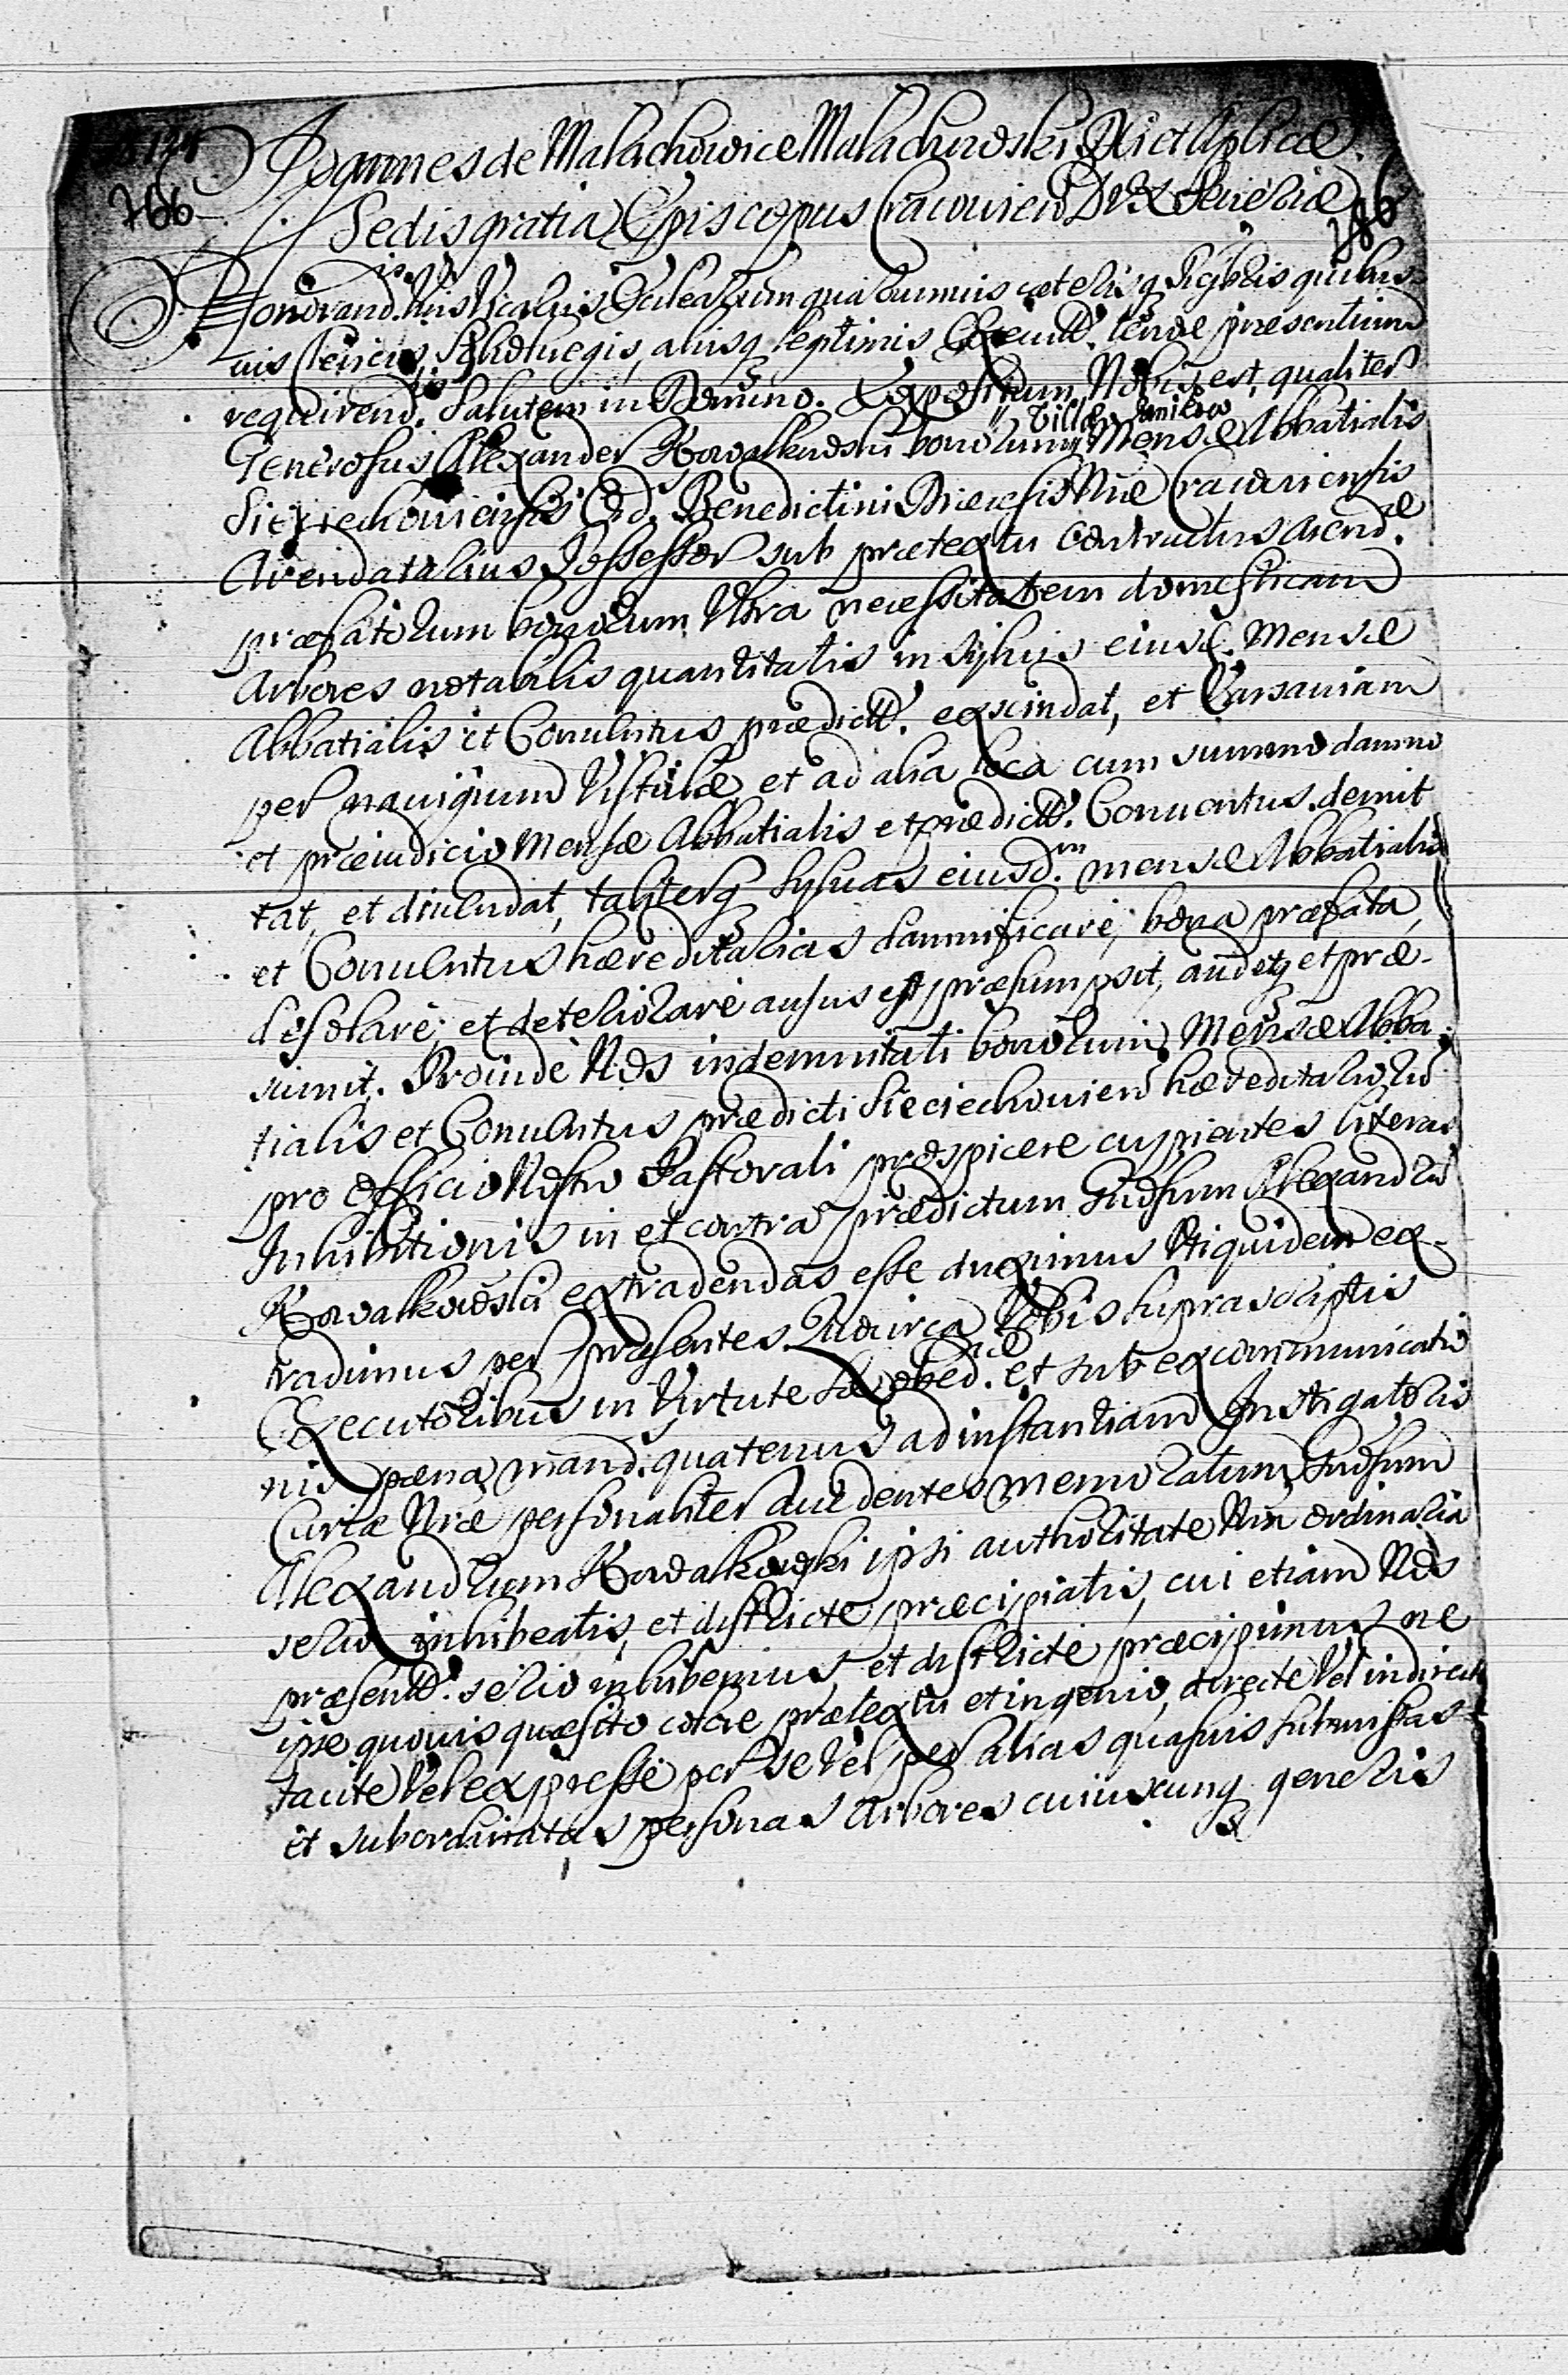 766
186
Joannes de Malachowice Malachowski, Dei et Aplicæ
Sedis gratia Episcopus Cracouien Dux Seueriæ
Honorand. Vicariis Ecclesiarum quarumuis cæterisq quibus-
uis Clericis, aliisq legitimis tenore præsentium
requirend. Salutem in Domino. Expositum Nobis est, qualiter
Generosus Alexander Kowalkowski bonorum Villæ Mensæ Abbatialis
Sieciechouiensis Ord. Benedictini Diæcesis Nræ Cracouiensis
Arendatarius Possessor sub prætextu contractus arendæ
præfatorum bonorum Vltra necessitatem domesticam
Arbores notabilis quantitatis in syluis eiusd. Mensæ
Abbatialis et Conuentus prædict. exscindat, et Varsauiam
per nauigium Vistulæ et ad alia loca cum summo damno
et præiudicio Mensæ Abbatialis et prædict. Conuentus demit
tat, et diuendat, taliterq syluas eiusdm mensæ Abbatialis
et Conuentus hæreditarias damnificare, bona præfata,
desolare, et deteriorare ausus est præsumpsit, audetq et præ-
sumit. Proinde Nos indemnitati bonorum Mensæ Abba
tialis et Conuentus prædicti Sieciechouien hæreditariorū
pro officio Nostro Pastorali prospicere cupientes literas
Inhibitionis in et contra prædictum Gnosum Alexandrū
Kowalkowski extradendas esse duximus Vtiquidem ex-
tradimus per præsentes. Quocirca Vobis suprascriptis
Executoribus in Virtute Sæ obed. et sub excommunicatio
nis pæna mand. quatenus ad instantiam Instigatoris
Curiæ Nræ personaliter accedentes memoratum Gnosum
Alexandrum Kowalkowski ipsi authoritate Nra ordinaria
serio inhibeatis, et districte præcipiatis, cui etiam Nos
præsent. serio inhibemus, et districte præcipimus ne
ipse quouis quæsito colore prætextu et ingenio, directe Vel indirecte
tacite Vel expresse per se Vel per alias quasuis submissas
et subordinatas personas Arbores cuiuscunq generis